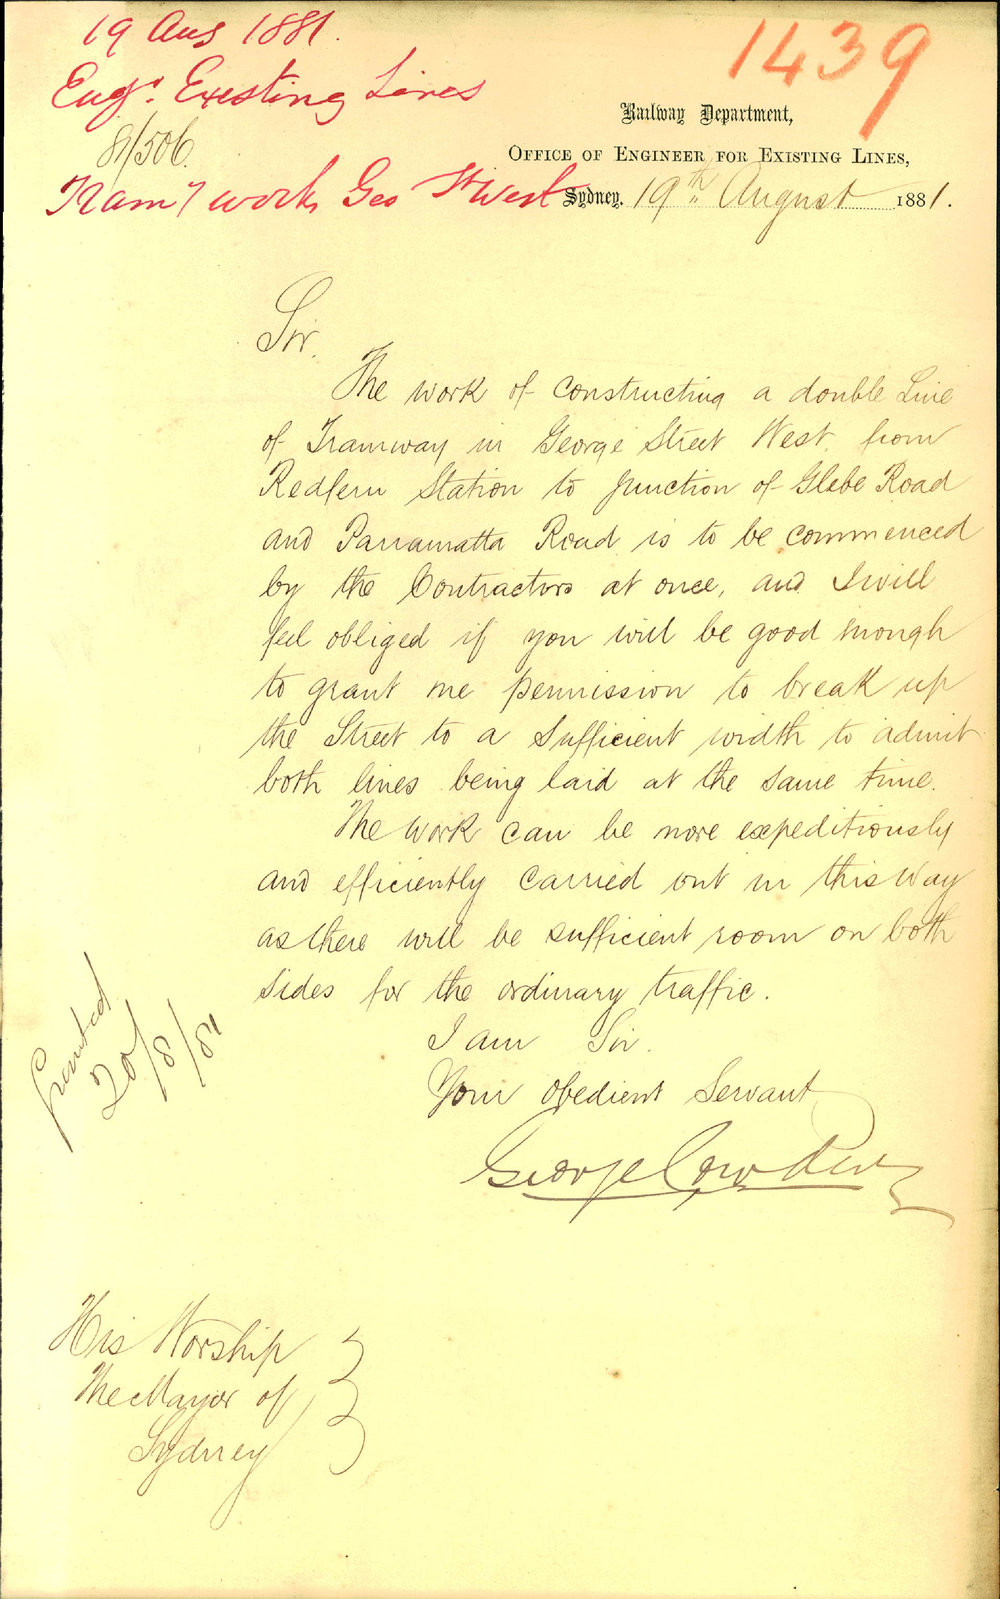 19 Aug 1881.
Engr. Existing Lines
81/506
Tramy work Geo St West
1439
Railway Department,
OFFICE OF ENGINEER FOR EXISTING LINES,
Sydney, 19th August 1881.
Sir,
The work of constructing a double Line
of Tramway in George Street West from
Redfern Station to junction of Glebe Road
and Parramatta Road is to be commenced
by the Contractors at once, and I will
feel obliged if you will be good enough
to grant me permission to break up
the Street to a sufficient width to admit
both lines being laid at the same time.
The work can be more expeditiously
and efficiently carried out in this way
as there will be sufficient room on both
sides for the ordinary traffic.
I am Sir.
Your obedient Servant
George Cowdery
Granted
20/8/81
His Worship
The Mayor of
Sydney